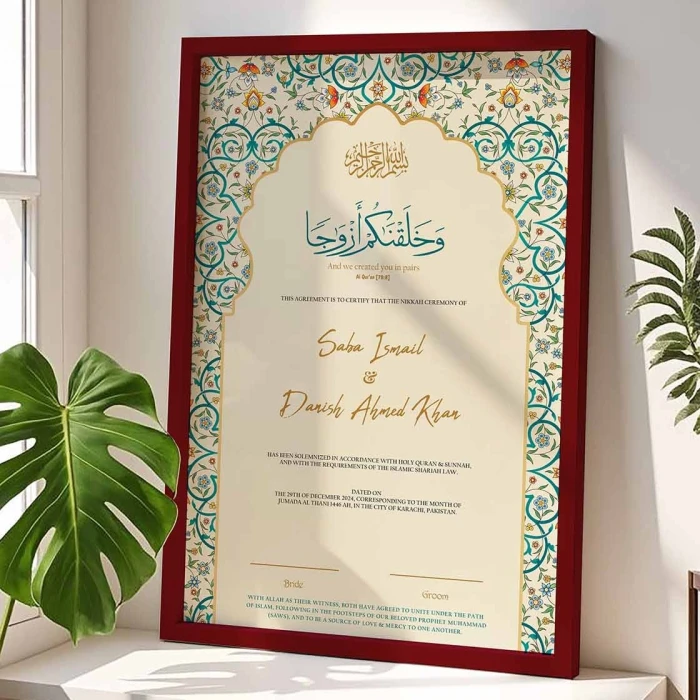 بسم الله الرحمن الرحيم
وَخَلَقْنَاكُمْ أَزْوَاجًا
And we created you in pairs
Al Qur'an [78:8]
THIS AGREEMENT IS TO CERTIFY THAT THE NIKKAH CEREMONY OF
Saba Ismail
&
Danish Ahmed Khan
HAS BEEN SOLEMNIZED IN ACCORDANCE WITH HOLY QURAN & SUNNAH,
AND WITH THE REQUIREMENTS OF THE ISLAMIC SHARIAH LAW.
DATED ON
THE 29TH OF DECEMBER 2024, CORRESPONDING TO THE MONTH OF
JUMADA AL THANI 1446 AH, IN THE CITY OF KARACHI, PAKISTAN.
Bride
Groom
WITH ALLAH AS THEIR WITNESS, BOTH HAVE AGREED TO UNITE UNDER THE PATH
OF ISLAM, FOLLOWING IN THE FOOTSTEPS OF OUR BELOVED PROPHET MUHAMMAD
(SAWS), AND TO BE A SOURCE OF LOVE & MERCY TO ONE ANOTHER.